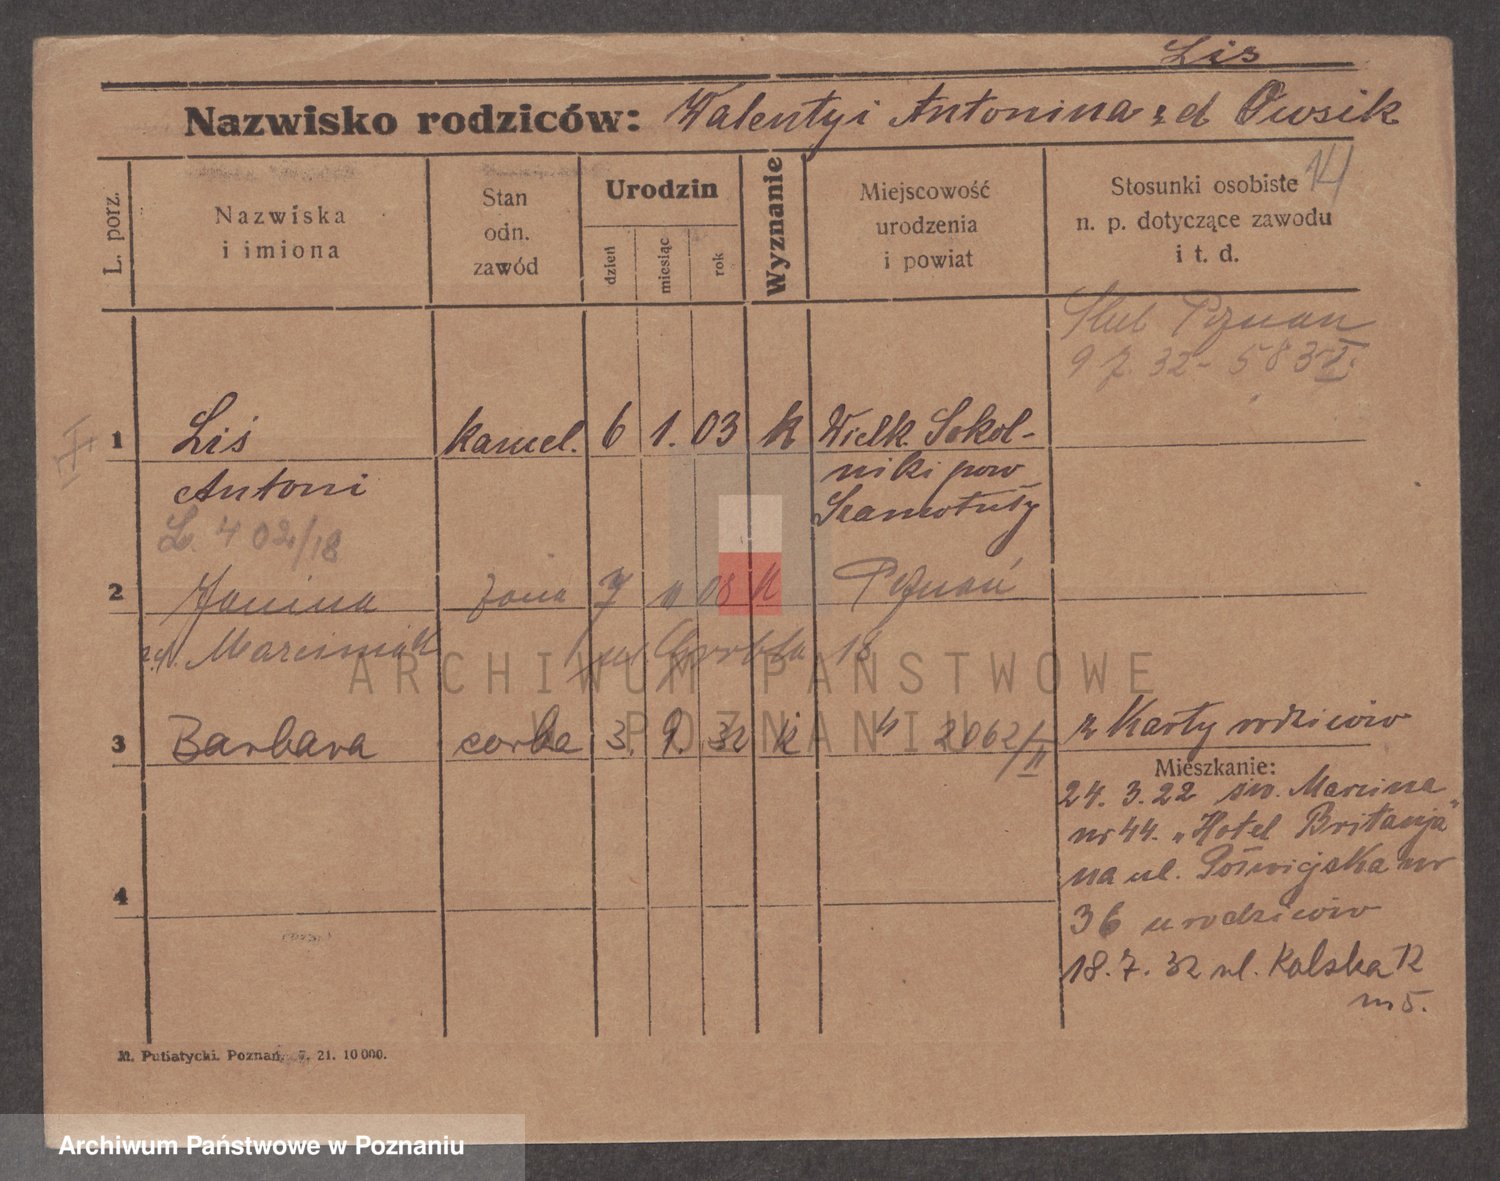 Lis
Nazwisko rodziców: Walenty i Antonina z d Owsik
14
L. porz.
Nazwiska
i imiona
Stan
odn.
zawód
Urodzin
dzień
miesiąc
rok
Wyznanie
Miejscowość
urodzenia
i powiat
Stosunki osobiste
n. p. dotyczące zawodu
i t. d.
Ślub Poznań
9 7. 32 - 583 II.
1 Liś kawel. 6 1. 03 k Wielk. Sokol-
niki pow
Antoni Szamotuły
L. 402/18
2 Janina żona 7 11 08 k Poznań
z d. Marciniak ul Grobla 18
3 Barbara corka 3. 9. 32 k 4 2062/II z Karty rodziców
Mieszkanie:
24. 3. 22 św. Marcina
nr 44. „Hotel Britanja"
na ul. Półwiejska nr
4
36 u rodziców
18. 7. 32 ul. Kolska 12
m 5.
M. Putiatycki. Poznań. 7. 21. 10 000.
ARCHIWUM PAŃSTWOWE
W POZNANIU
Archiwum Państwowe w Poznaniu